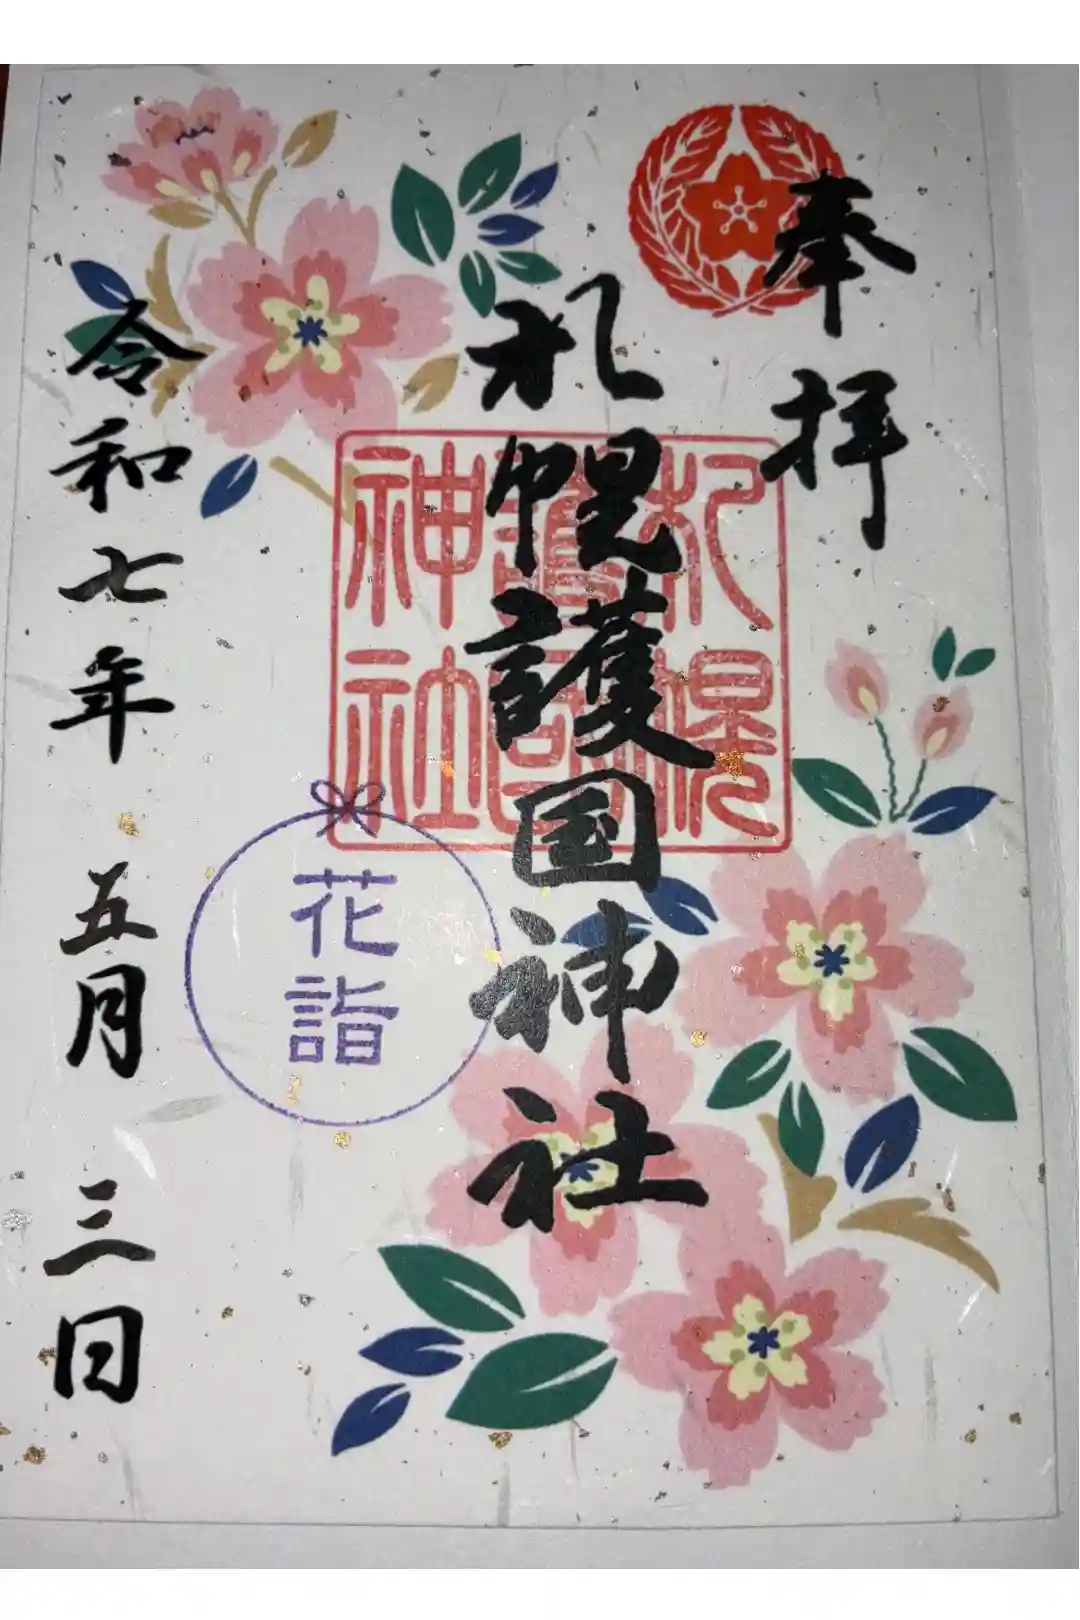 奉拝
札幌護国神社
札幌護国神社
花詣
令和七年 五月 三日